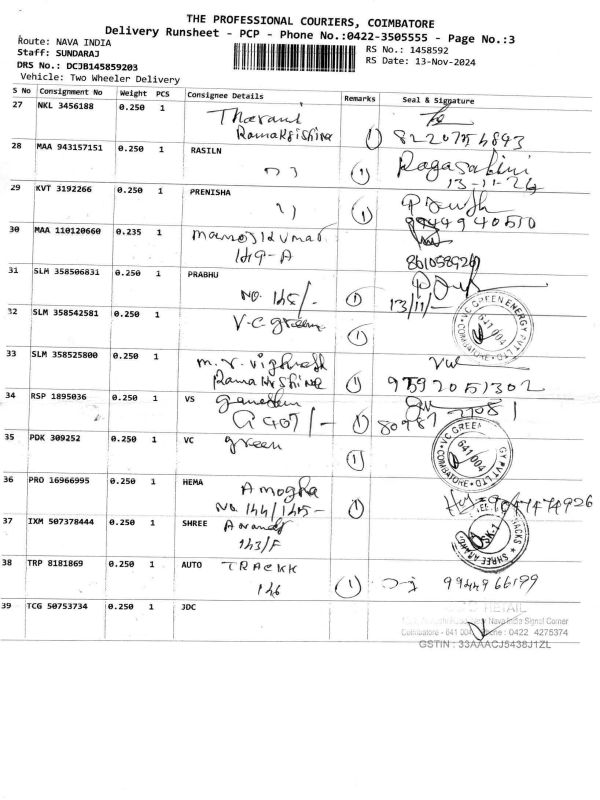 THE PROFESSIONAL COURIERS, COIMBATORE
Delivery Runsheet - PCP - Phone No.:0422-3505555 - Page No.:3
Route: NAVA INDIA
Staff: SUNDARAJ
DRS No.: DCJB145859203
Vehicle: Two Wheeler Delivery
RS No.: 1458592
RS Date: 13-Nov-2024
S No Consignment No Weight PCS Consignee Details Remarks Seal & Signature
27 NKL 3456188 0.250 1 Tharani
Ramakrishna 1 8220754893
28 MAA 943157151 0.250 1 RASILN 1 Ragasalini
13-11-24
29 KVT 3192266 0.250 1 PRENISHA 1
9944940510
30 MAA 110120660 0.235 1 manojkumar
149-A
31 SLM 358506831 0.250 1 PRABHU
NO. 145/- 1 13/11/-
32 SLM 358542581 0.250 1 V.C. green 1
VC GREEN ENERGY PVT LTD COIMBATORE 641 004
33 SLM 358525800 0.250 1 m.v. vighnesh
Ramakrishna 1 9592051302
34 RSP 1895036 0.250 1 VS ganesh
G 407/- 1
35 PDK 309252 0.250 1 VC green 1
VC GREEN GY PVT LTD COIMBATORE 641 004
36 PRO 16966995 0.250 1 HEMA Amogha
NO. 144/145- 1
37 IXM 507378444 0.250 1 SHREE Anand
143/F
38 TRP 8181869 0.250 1 AUTO TRACKK
146 1 9944966199
39 TCG 50753734 0.250 1 JDC
RETAIL
Nava India Signal Corner
Coimbatore - 641 004. Phone : 0422 4275374
GSTIN : 33AAACJ5438J1ZL